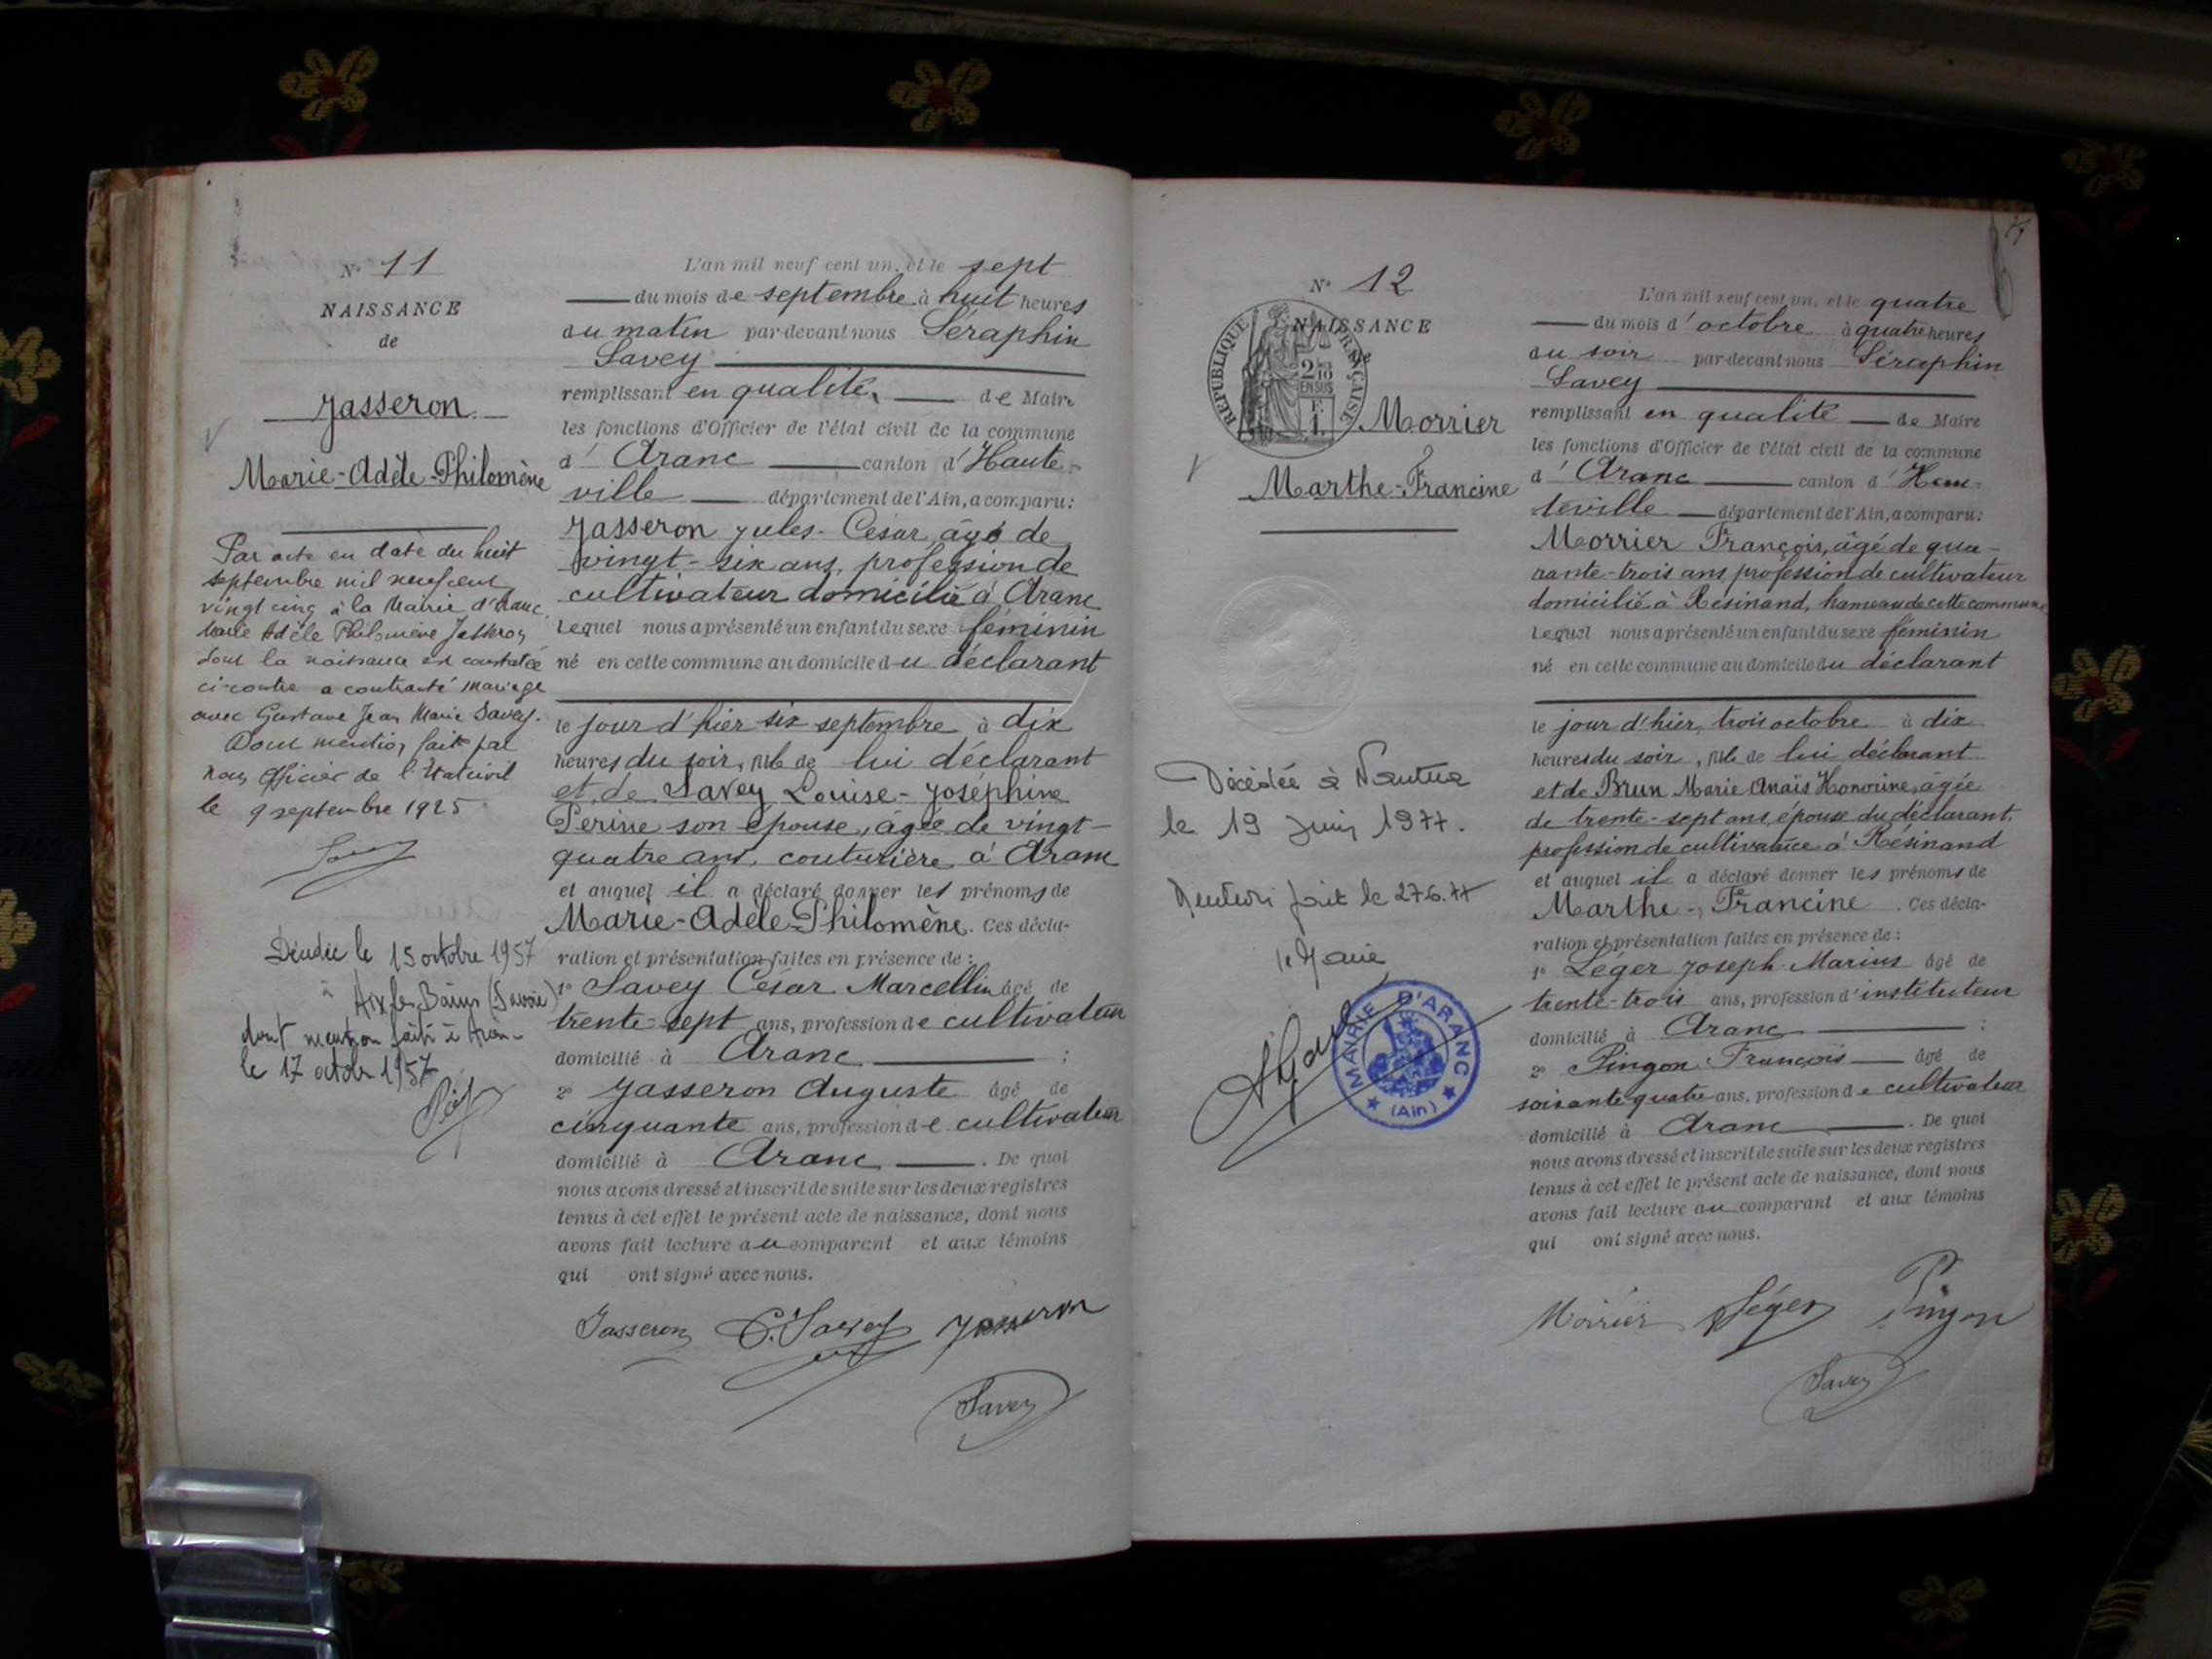 N° 11
NAISSANCE
de
Jasseron
Marie-Adèle-Philomène
Par acte en date du huit
septembre mil neuf cent
vingt cinq à la Mairie d'Aranc
Marie Adèle Philomène Jasseron
dont la naissance est constatée
ci-contre a contracté mariage
avec Gustave Jean Marie Savey.
Dont mention faite par
nous Officier de l'Etat civil
le 9 septembre 1925
Décédée le 15 octobre 1957
à Aix les Bains (Savoie)
dont mention faite à Aranc
le 17 octobre 1957
L'an mil neuf cent un, et le sept
du mois de septembre à huit heures
du matin par-devant nous Séraphin
Savey
remplissant en qualité, de Maire
les fonctions d'Officier de l'état civil de la commune
d' Aranc canton d'Haute-
ville département de l'Ain, a comparu:
Jasseron Jules-César, âgé de
vingt-six ans, profession de
cultivateur domicilié à Aranc
Lequel nous a présenté un enfant du sexe féminin
né en cette commune au domicile du déclarant
le jour d'hier six septembre à dix
heures du soir, fille de lui déclarant
et de Savey Louise-Joséphine
Perine son épouse, âgée de vingt-
quatre ans, couturière à Aranc
et auquel il a déclaré donner les prénoms de
Marie-Adèle-Philomène. Ces décla-
ration et présentation faites en présence de :
1° Savey César Marcellin âgé de
trente-sept ans, profession de cultivateur
domicilié à Aranc ;
2° Jasseron Auguste âgé de
cinquante ans, profession de cultivateur
domicilié à Aranc . De quoi
nous avons dressé et inscrit de suite sur les deux registres
tenus à cet effet le présent acte de naissance, dont nous
avons fait lecture au comparant et aux témoins
qui ont signé avec nous.
Jasseron C. Savey Jasseron
Savey
N° 12
NAISSANCE
de
REPUBLIQUE FRANÇAISE
2/10
EN SUS
F.
1.
Morrier
Marthe-Francine
Décédée à Nantua
le 19 juin 1977.
Mention fait le 27.6.77
le Maire
MAIRIE D'ARANC
(Ain)
L'an mil neuf cent un, et le quatre
du mois d'octobre à quatre heures
du soir par-devant nous Séraphin
Savey
remplissant en qualité de Maire
les fonctions d'Officier de l'état civil de la commune
d' Aranc canton d'Hau-
teville département de l'Ain, a comparu:
Morrier François, âgé de qua-
rante-trois ans profession de cultivateur
domicilié à Résinand, hameau de cette commune
Lequel nous a présenté un enfant du sexe féminin
né en cette commune au domicile du déclarant
le jour d'hier, trois octobre à dix
heures du soir, fille de lui déclarant
et de Brun Marie Anaïs Honorine, âgée
de trente-sept ans, épouse du déclarant,
profession de cultivatrice à Résinand
et auquel il a déclaré donner les prénoms de
Marthe-Francine . Ces décla-
ration et présentation faites en présence de :
1° Léger Joseph-Marius âgé de
trente-trois ans, profession d'instituteur
domicilié à Aranc ;
2° Pingon François âgé de
soixante quatre ans, profession de cultivateur
domicilié à Aranc . De quoi
nous avons dressé et inscrit de suite sur les deux registres
tenus à cet effet le présent acte de naissance, dont nous
avons fait lecture au comparant et aux témoins
qui ont signé avec nous.
Morrier Léger Pingon
Savey